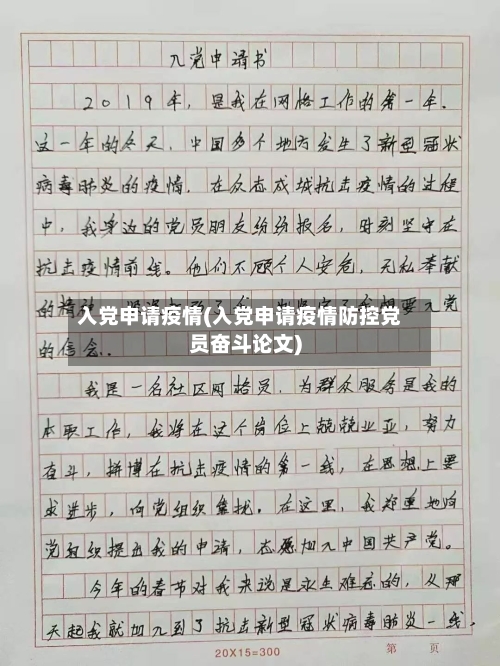 入党申请书
2019年,是我在网格工作的第一年.
这一年的冬天,中国多个地方发生了新型冠状
病毒肺炎的疫情.在众志成城抗击疫情的过程
中,我身边的党员朋友纷纷报名,时刻坚守在
抗击疫情前线。他们不顾个人安危,无私奉献
的精神
入党
入党申请疫情(入党申请疫情防控党
员奋斗论文)
的信念.
我是一名社区网格员,为群众服务是我的
本职工作,我将在这个岗位上兢兢业业,努力
奋斗,拼博在抗击疫情的第一线,在思想上要
求进步,向党组织靠拢.在这里,我郑重地向
党组织提出我的申请,志愿加入中国共产党。
今年的春节对我来说是永生难忘的,从那
天起我就加入到了抗击新型冠状病毒肺炎一线,
20X15=300
第 页